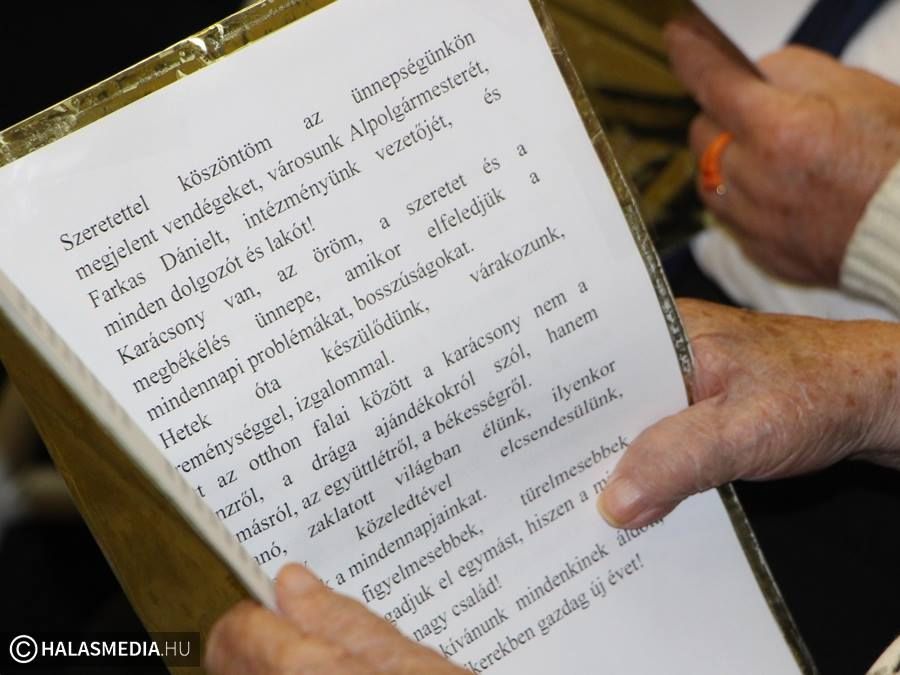 Szeretettel köszöntöm az ünnepségünkön
megjelent vendégeket, városunk Alpolgármesterét,
Farkas Dánielt, intézményünk vezetőjét, és
minden dolgozót és lakót!
Karácsony van, az öröm, a szeretet és a
megbékélés ünnepe, amikor elfeledjük a
mindennapi problémákat, bosszúságokat.
Hetek óta készülődünk, várakozunk,
reménységgel, izgalommal.
t az otthon falai között a karácsony nem a
nzről, a drága ajándékokról szól, hanem
másról, az együttlétről, a békességről.
nó, zaklatott világban élünk, ilyenkor
közeledtével elcsendesülünk,
k a mindennapjainkat.
figyelmesebbek, türelmesebbek
gadjuk el egymást, hiszen a mi
nagy család!
kívánunk mindenkinek áldott,
ikerekben gazdag új évet!
© HALASMEDIA.HU